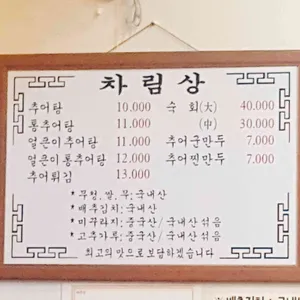 차림상
추어탕 10.000 숙 회(大) 40.000
통추어탕 11.000 (中) 30.000
얼큰이 추어탕 11.000 추어군만두 7,000
얼큰이 통추어탕 12.000 추어찐만두 7,000
추어튀김 13.000
* 무청, 쌀, 무:국내산
* 배추김치:국내산
* 미꾸라지: 중국산/ 국내산 섞음
* 고추가루: 중국산/ 국내산 섞음
최고의 맛으로 보답하겠습니다